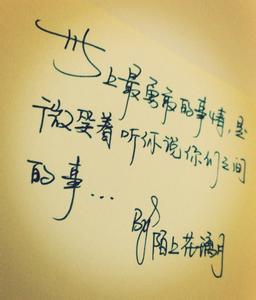 世上最勇敢的事情,是
微笑着听你说你们之间
的事...
By
陌上花满月